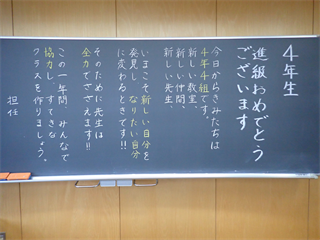 4年生
進級おめでとう
ございます
今日からきみたちは
4年4組です。
新しい教室、
新しい仲間、
新しい先生、
いまこそ新しい自分を
発見し なりたい自分
に変わるときです!!
そのために先生は
全力でささえます!!
この一年間 みんなで
協力し、すてきな
クラスを作りましょう。
担任